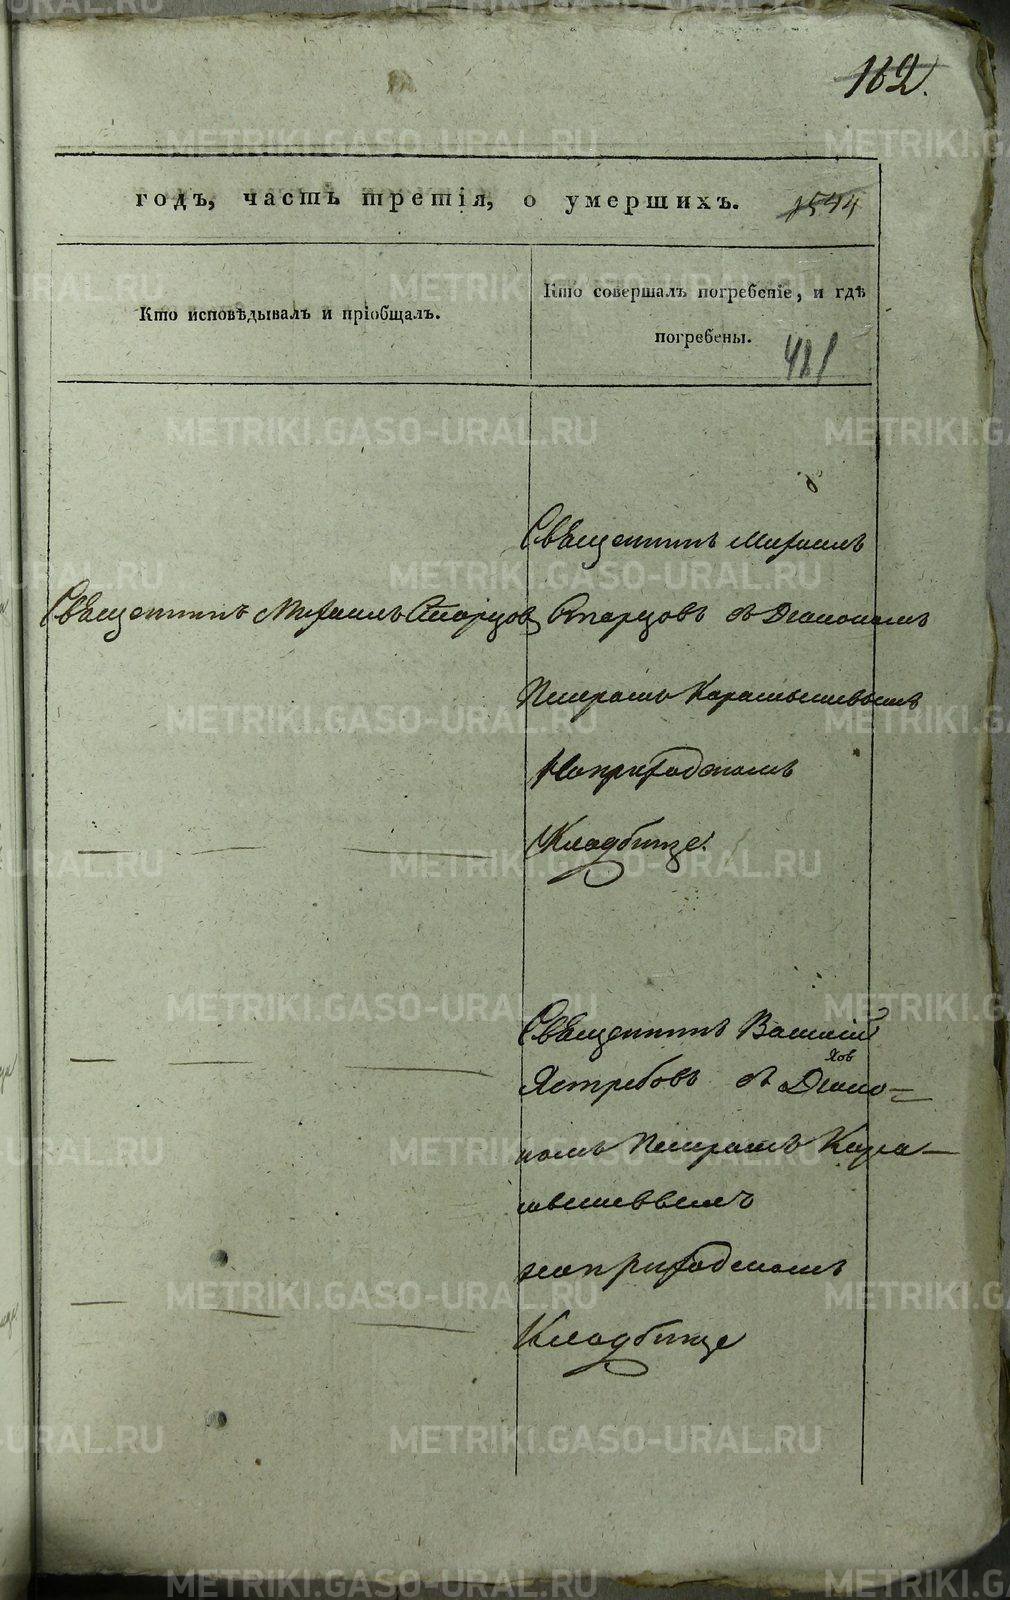 162.
годъ, часть третія, о умершихъ. 1544
Кто исповѣдывалъ и пріобщалъ.
Кто совершалъ погребеніе, и гдѣ
погребены.
481
Священникъ Михаилъ
Священникъ Михаилъ Старцов Старцовъ съ Діакономъ
Петромъ Карамышевымъ
На приходскомъ
Кладбище.
Священникъ Василій
Ястребовъ съ Діако-
номъ Петромъ Кара-
мышевымъ
на приходскомъ
Кладбище
METRIKI.GASO-URAL.RU